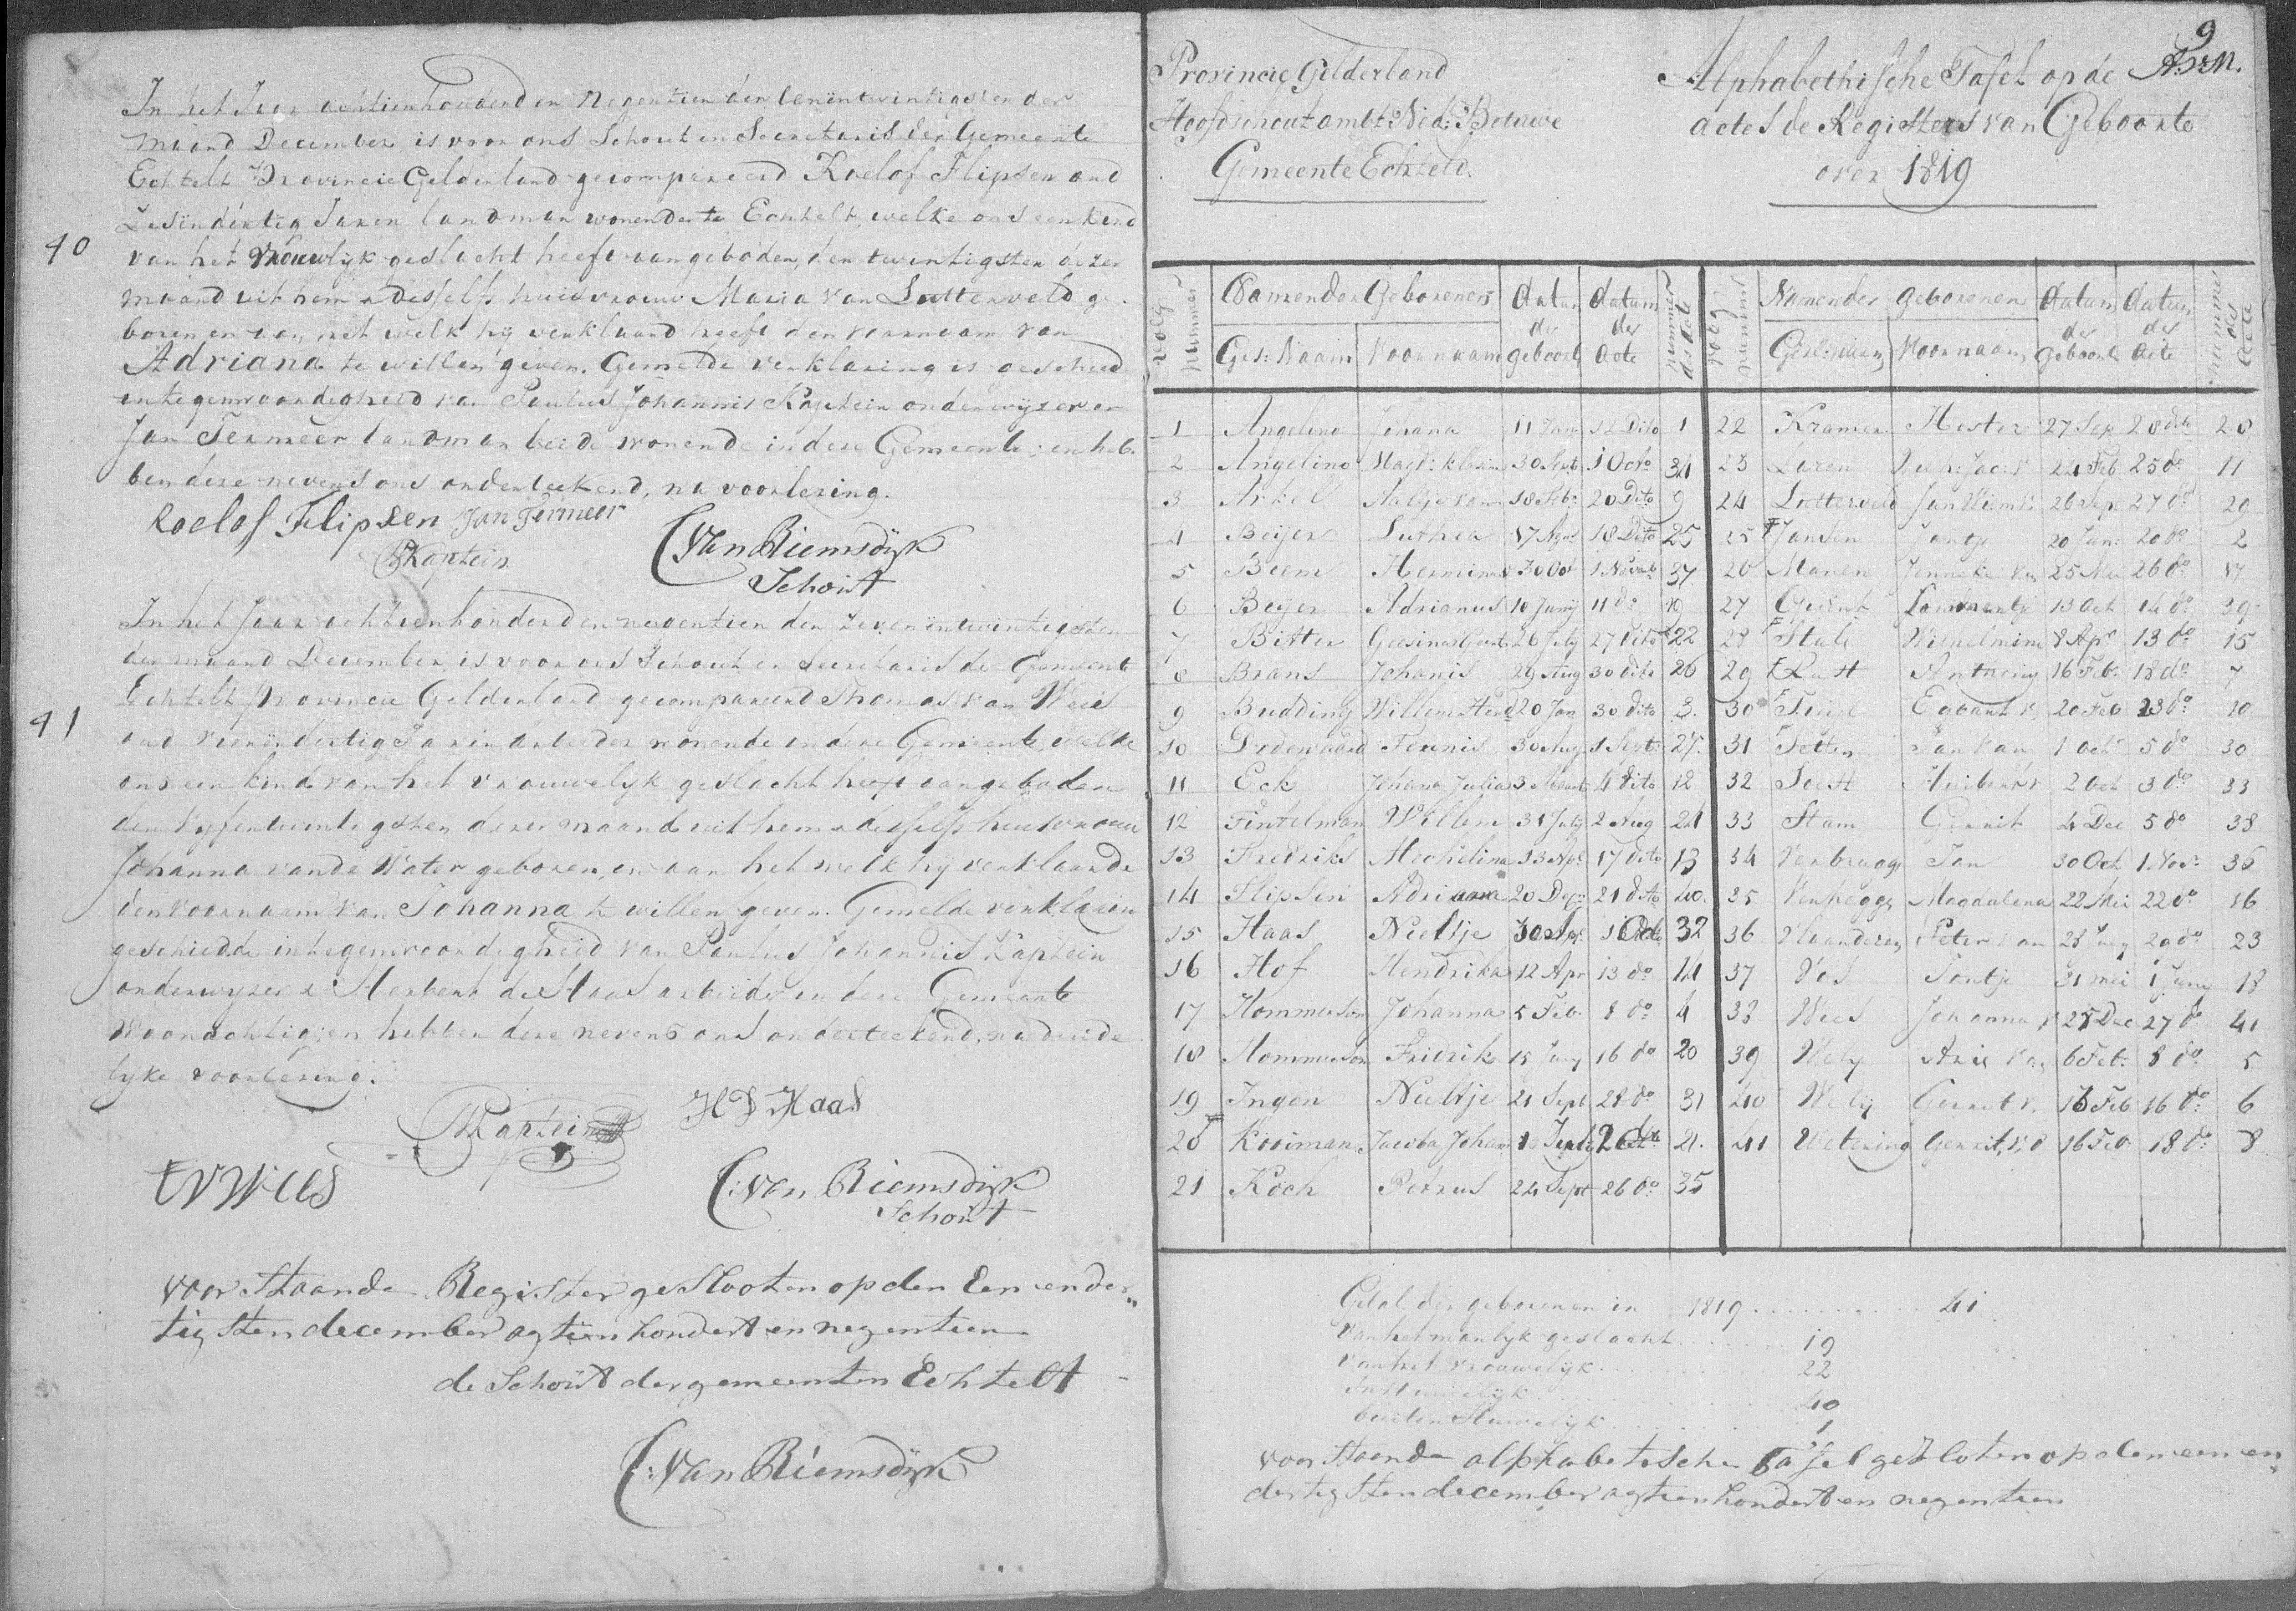 In het Jaar achtienhonderd en Negentien den eenentwintigsten der
maand December is voor ons Schout en Secretaris der Gemeente
Echtelt Provincie Gelderland gecompareerd Roelof Flipsen oud
Zesendertig Jaren landman wonende te Echtelt, welke ons een kind
40
van het Vrouwlyk geslacht heeft aangeboden, den twintigsten dezer
maand uit hem & desselfs huisvrouw Maria van Lutterveld ge-
boren en aan het welk hy verklaard heeft den voornaam van
Adriana te willen geven. Gemelde verklaring is geschied
in tegenwoordigheid van Paulus Johannis Kaptein onderwyzer en
Jan Termeer landman beide wonende in deze Gemeente; en heb-
ben deze nevens ons onderteekend, na voorlezing.
Roelof Flipsen Jan Termeer
PJKaptein
C Van Riemsdyk
Schout
In het Jaar achtienhonderd en negentien den Zevenentwintigsten
der maand December, is voor ons Schout en Secretaris der Gemeente
Echtelt Provincie Gelderland gecompareerd Thomas van Wees
41
oud vierendertig Jaren arbeider wonende in deze Gemeente, welke
ons een kind van het vrouwelyk geslacht heeft aangeboden
den Vyfentwintigsten dezer maand uit hem & desselfs huisvrouw
Johanna van de Water geboren, en aan het welk hy verklaarde
den voornaam van Johanna te willen geven. Gemelde verklaring
geschiedde in tegenwoordigheid van Paulus Johannis Kaptein
onderwyzer & Herbert de Haas arbeider in deze Gemeente
Woonachtig; en hebben deze nevens ons onderteekend, na duide
lyke voorlezing.
PJKaptein
H D Haas
T V Wees
C: van Riemsdyk
Schout
voor Staande Register geslooten op den Een en der„
tigsten december agtien hondert en negentien
de Schout der gemeenten Echtelt
C: Van Riemsdyk
9
Provincie Gelderland
Hoofdschoutambt Ned: Betuwe
Gemeente Echteld.
Alphabethische Tafel op de
actes de Registers van Geboorte
over 1819
volg nummer | Namen der Geborenen | datum der geboort | datum der acte | nummer des acte | volg nummer | Namen der geborenen | datum der geboort | datum der acte | nummer der acte
Ges: Naam | Voornaam | Gesl: naam | Voornaam
1 Angelino Johana 11 Jan 12 Dito 1 22 Kramer Hester 27 Sep 28 dito 28
2 Angelino Magd: 30 Sept 1 Octo 34 23 Leren 24 Feb 25 do 11
3 Arkel Aaltje van 18 Feb: 20 Dito 9 24 Lutterveld Jan Willem v 26 Sep 27 do 29
4 Beijer Luther 17 Agus 18 Dito 25 25 Jansen Jantje 20 Jan: 20 do 2
5 Beem Herminus 30 Oct 1 Novemb 37 26 Manen Jenneke van 25 Mei 26 do 17
6 Beijer Adrianus 10 Junij 11 do 19 27 13 Oct 14 do 39
7 Bitter Geesina Gert 26 July 27 dito 22 28 Wilhelmina 8 Apr 13 do 15
8 Brans Johanis 29 Aug 30 dito 26 29 Rust Anthonij 16 Feb. 18 do 7
9 Budding Willem Hend 20 Jan 30 dito 3. 30 Egbert v. 20 Feb 23 do 10
10 Dodewaard Teunis 30 Aug 1 Sept: 27. 31 Tetten Jan van 1 octr 5 do 30
11 Eck Johana Julia 3 Maart 4 dito 12 32 Soest Huibert v 2 Oct 3 do 33
12 Fintelman Willem 31 July 2 Aug 24 33 Stam Gerrit 4 Dec 5 do 38
13 Fredriks Mechelina 13 Apr 17 dito 13 34 Verbrugge Jan 30 Oct 1 Nov: 36
14 Flipsen Adriana 20 Dec: 21 dito 40. 35 Verhegge Magdalena 22 Mei 22 do 16
15 Haas Neeltje 30 Sep 1 Octo 32 36 Vlaanderen Peter van 28 July 29 do 23
16 Hof Hendrika 12 Apr 13 do 14 37 Vos Jantje 31 mei 1 Juny 18
17 Hommerson Johanna 5 Feb. 8 do 4 38 Wees Johanna v 25 Dec 27 do 41
18 Hommerson Fridrik 15 Juny 16 do 20 39 Wely Arie van 6 Feb: 8 do 5
19 Ingen Neeltje 21 Sept 28 do 31 40 Wely Gerret v. 16 Feb 16 do: 6
20 Kooiman Jacoba Johana 1 July 2 dito 21. 41 Wetering Gerrit, v. d 16 Feb 18 do: 8
21 Koch Petrus 24 Sept 26 do: 35
Getal der geborenen in 1819 . . . . . . . . . . 41
Van het manlyk geslacht . . . . . . 19
van het vrouwelyk . . . . . . 22
In Huwelijk . . . . . . 40
buiten Huwelyk . . . . . . 1
voor Staande alphabetische tafel gesloten op den een en„
dertigsten december agtien hondert en negentien